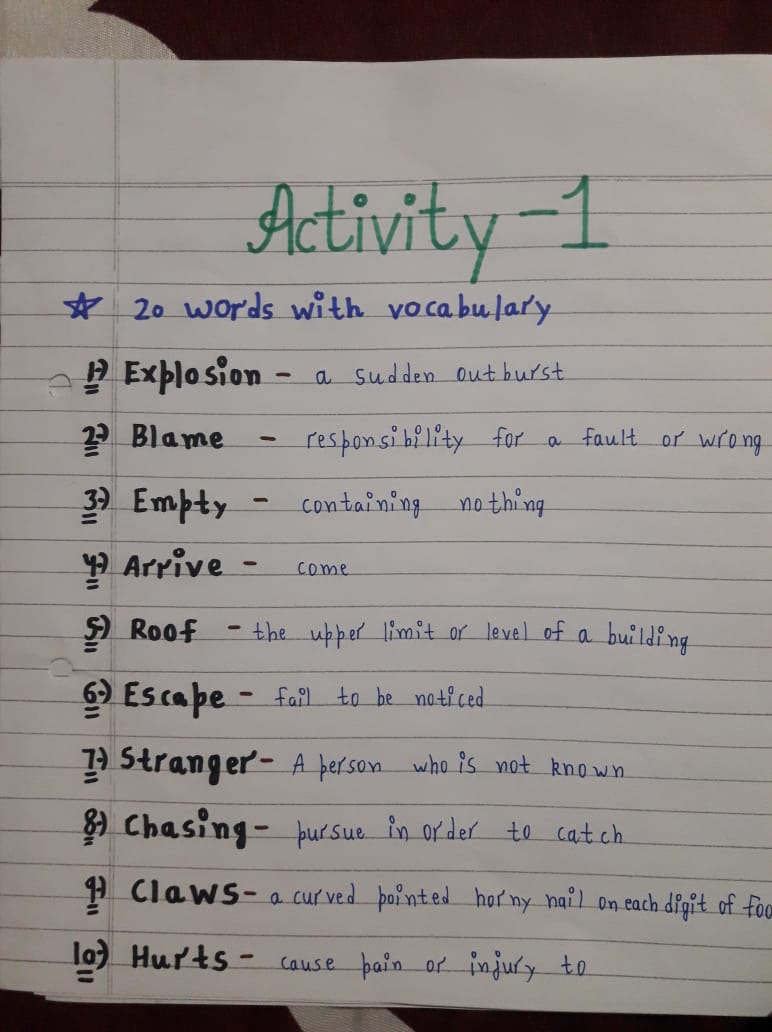 Activity-1
☆ 20 words with vocabulary
1) Explosion - a sudden outburst
2) Blame - responsibility for a fault or wrong
3) Empty - containing nothing
4) Arrive - come
5) Roof - the upper limit or level of a building
6) Escape - fail to be noticed
7) Stranger - A person who is not known
8) Chasing - pursue in order to catch
9) Claws - a curved pointed horny nail on each digit of foo
10) Hurts - cause pain or injury to